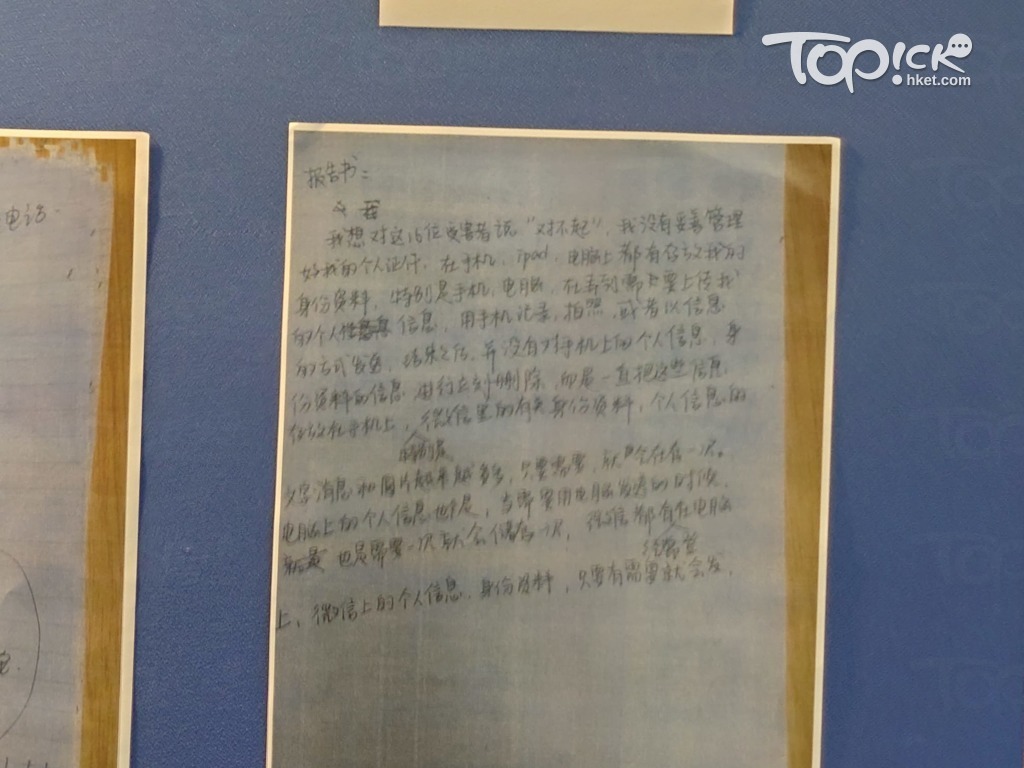 TOPick
hket.com
电话.
报告书:
我
我想对这16位受害者说"对不起", 我没有妥善管理
好我的个人证件, 在手机, ipad, 电脑上都有存放我的
身份资料, 特别是手机, 电脑, 在看到需要上传我
的个人信息, 用手机记录, 拍照, 或者以信息
的方式发去, 结束之后, 并没有对手机上的个人信息, 身
份资料的信息 进行及时删除, 而是一直把这些信息
存放在手机上, 微信里的有关身份资料, 个人信息的
特别是
文字消息和图片越来越多, 只要需要, 就会存在一次。
电脑上的个人信息也是, 当需要用电脑发送的时候,
也是需要一次就会储存一次, 微信都有在电脑
经常登
上, 微信上的个人信息, 身份资料, 只要有需要就会发,